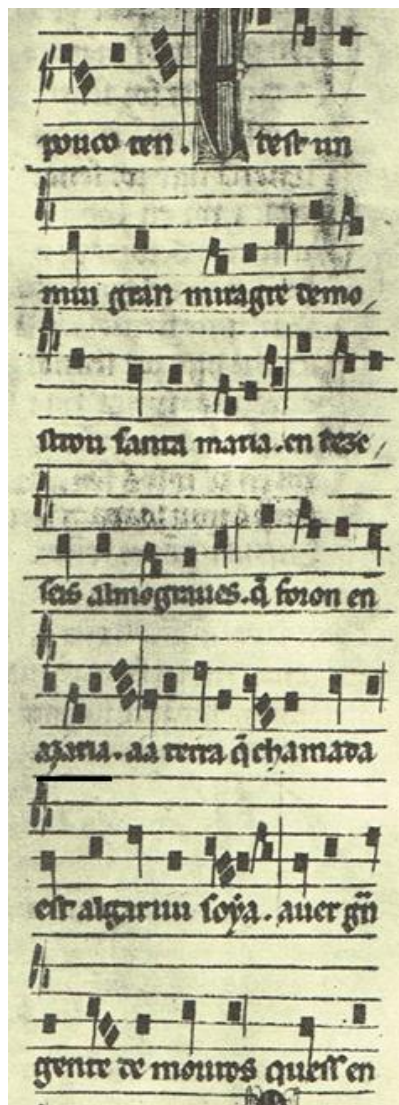 pouco ten. E dest un
mui gran miragre demo
strou santa maria. en deze
seis almograues. q̄ foron en
azaria. aa terra q̄ chamada
est algariuu soya. auer gñ
gente de mouros quess en